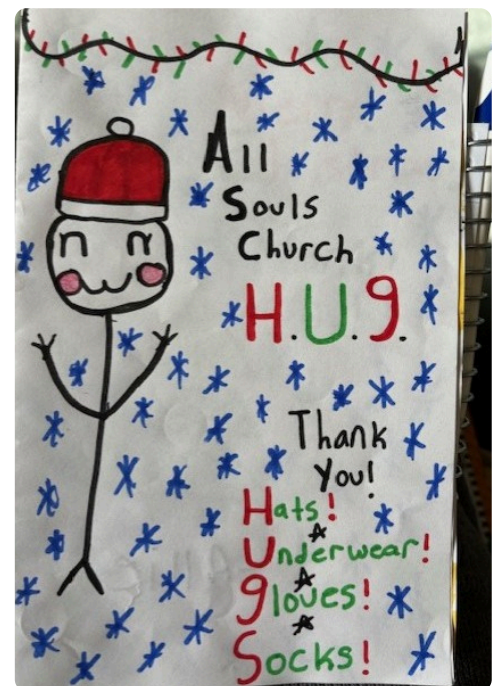 All
Souls
Church
H.U.g.
Thank
You!
Hats!
Underwear!
gloves!
Socks!